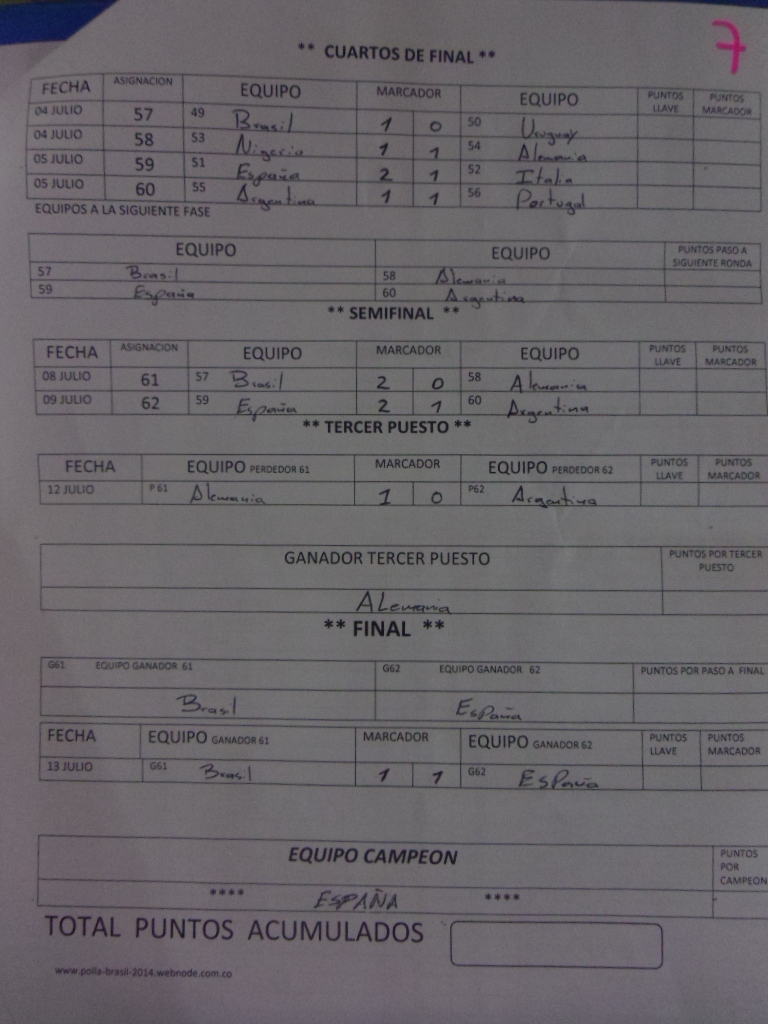 7
** CUARTOS DE FINAL **
FECHA ASIGNACION EQUIPO MARCADOR EQUIPO PUNTOS LLAVE PUNTOS MARCADOR
04 JULIO 57 49 Brasil 1 0 50 Uruguay
04 JULIO 58 53 Nigeria 1 1 54 Alemania
05 JULIO 59 51 España 2 1 52 Italia
05 JULIO 60 55 Argentina 1 1 56 Portugal
EQUIPOS A LA SIGUIENTE FASE
EQUIPO EQUIPO PUNTOS PASO A SIGUIENTE RONDA
57 Brasil 58 Alemania
59 España 60 Argentina
** SEMIFINAL **
FECHA ASIGNACION EQUIPO MARCADOR EQUIPO PUNTOS LLAVE PUNTOS MARCADOR
08 JULIO 61 57 Brasil 2 0 58 Alemania
09 JULIO 62 59 España 2 1 60 Argentina
** TERCER PUESTO **
FECHA EQUIPO PERDEDOR 61 MARCADOR EQUIPO PERDEDOR 62 PUNTOS LLAVE PUNTOS MARCADOR
12 JULIO P61 Alemania 1 0 P62 Argentina
GANADOR TERCER PUESTO PUNTOS POR TERCER PUESTO
ALemania
** FINAL **
G61 EQUIPO GANADOR 61 G62 EQUIPO GANADOR 62 PUNTOS POR PASO A FINAL
Brasil España
FECHA EQUIPO GANADOR 61 MARCADOR EQUIPO GANADOR 62 PUNTOS LLAVE PUNTOS MARCADOR
13 JULIO G61 Brasil 1 1 G62 ESPaña
EQUIPO CAMPEON PUNTOS POR CAMPEON
**** ESPAÑA ****
TOTAL PUNTOS ACUMULADOS
www.polla-brasil-2014.webnode.com.co